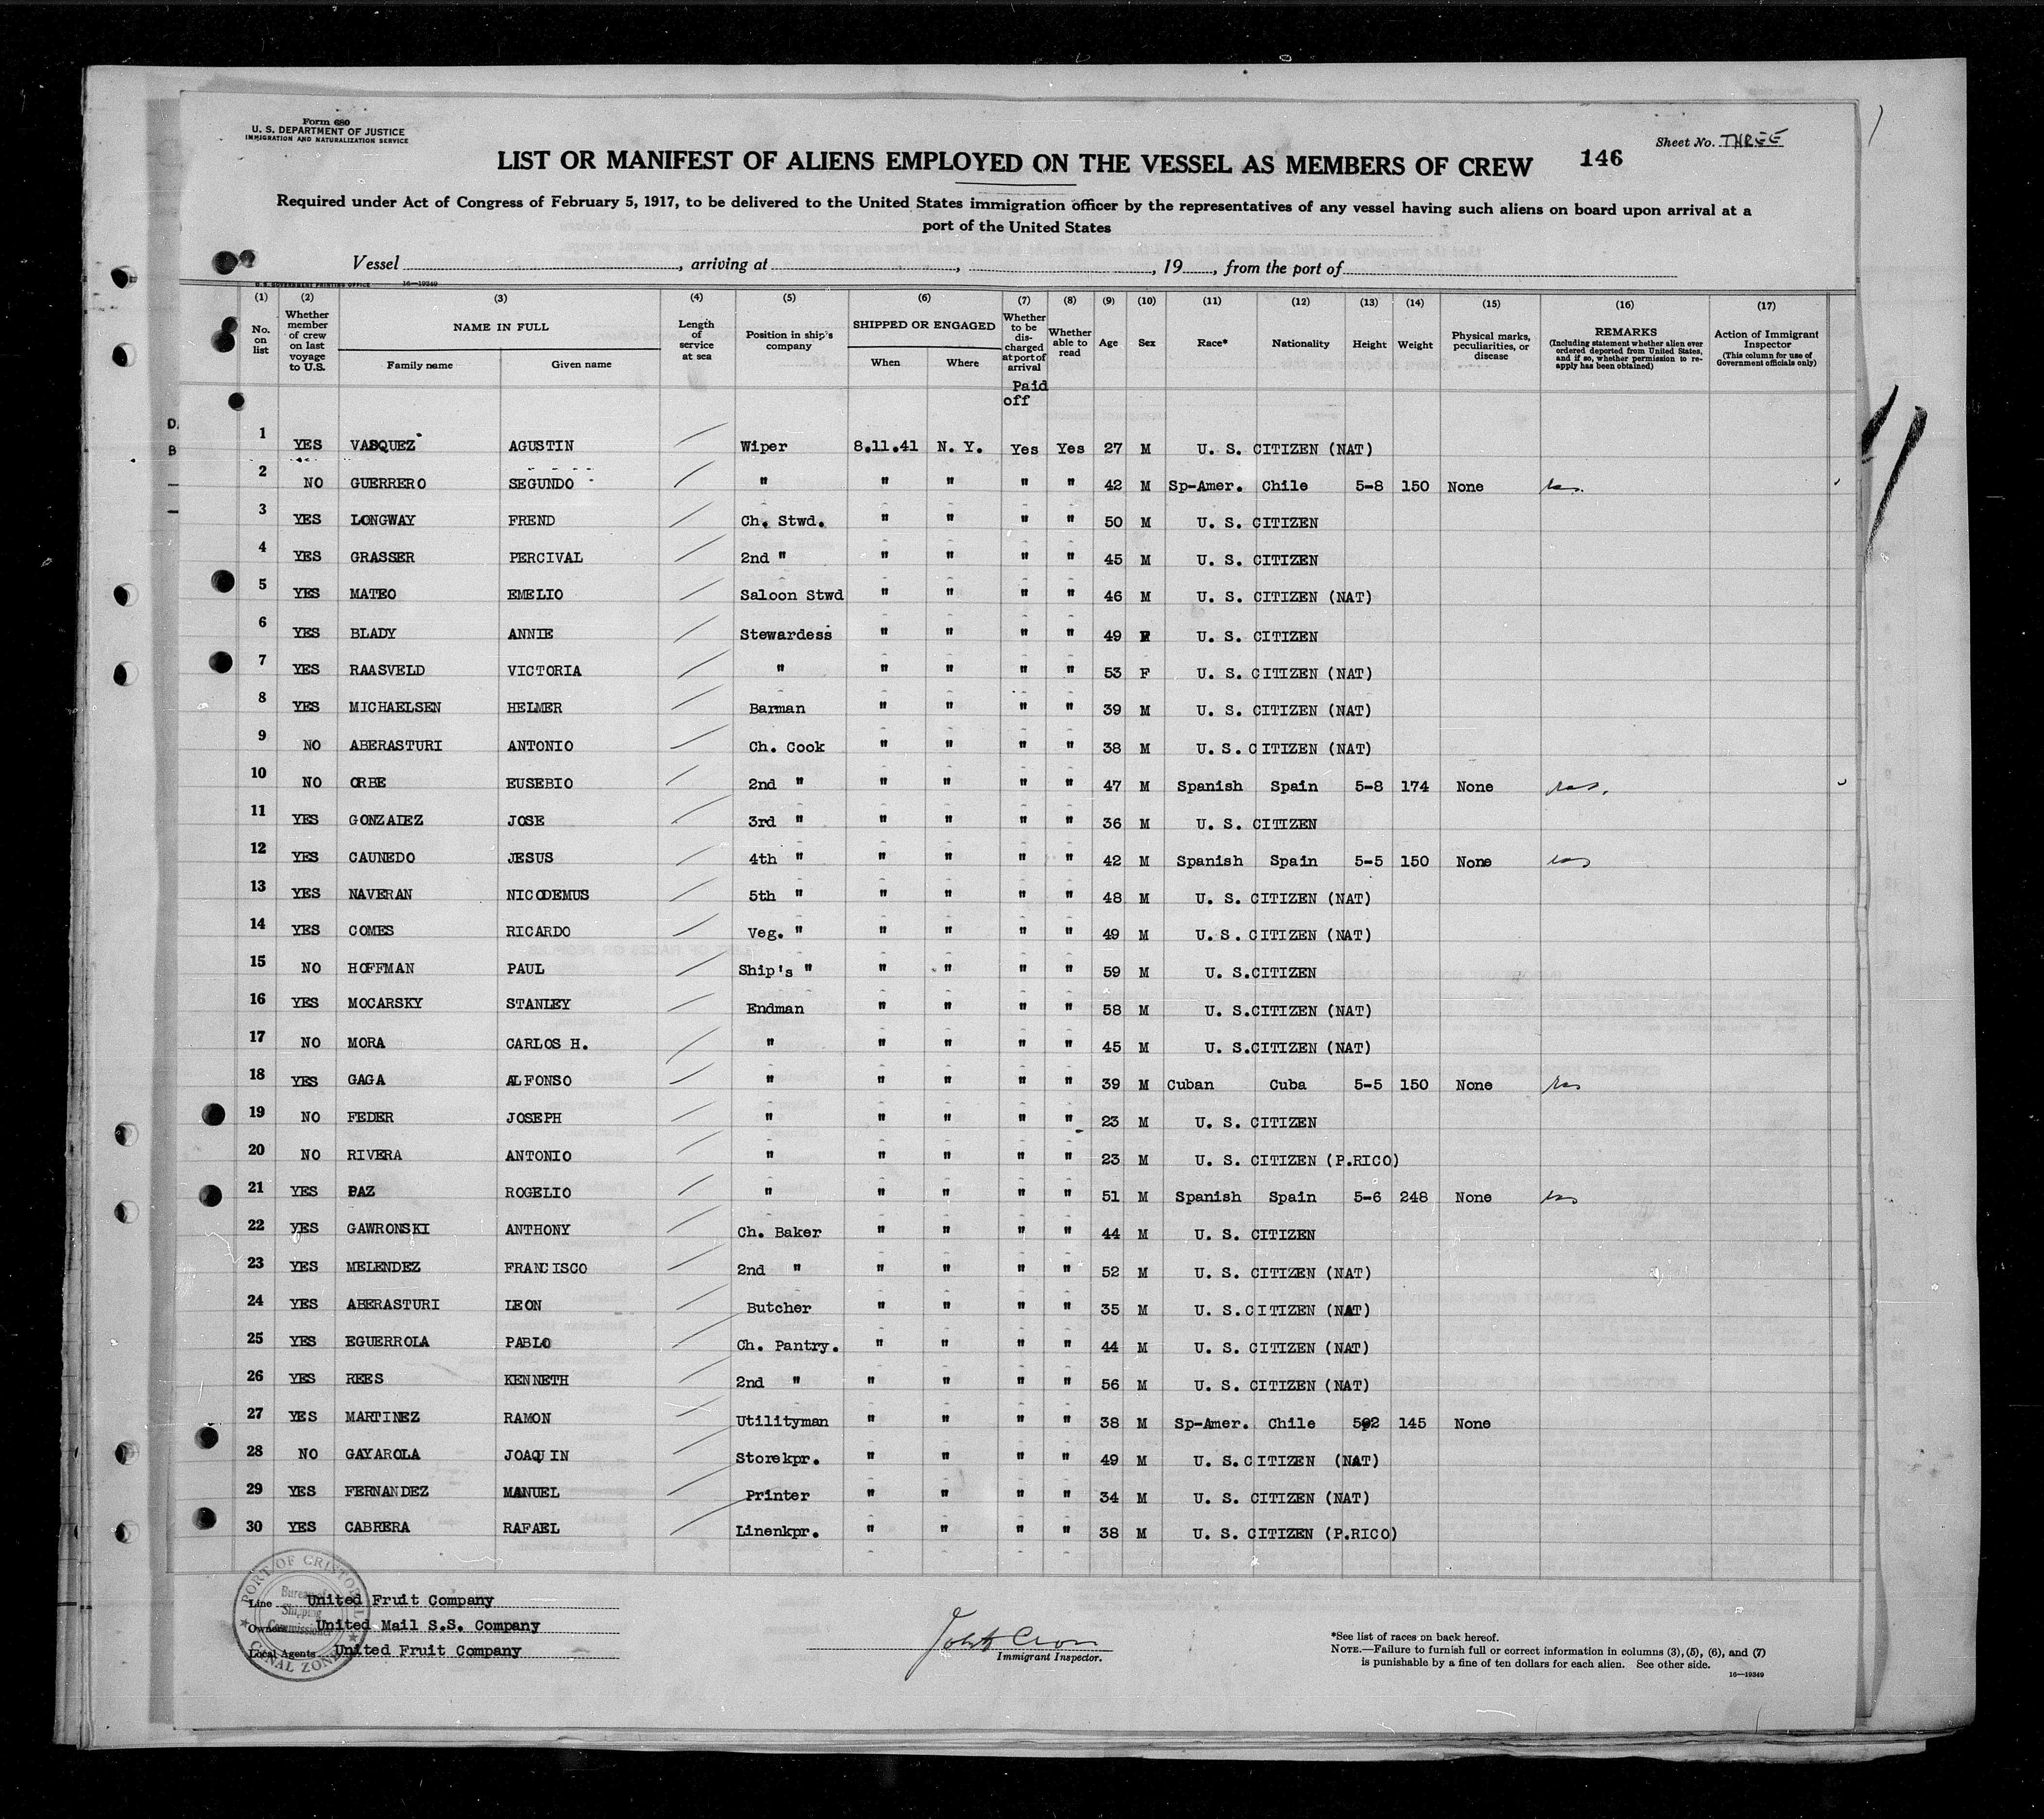 Form 680
U. S. DEPARTMENT OF JUSTICE
IMMIGRATION AND NATURALIZATION SERVICE
Sheet No. THREE
LIST OR MANIFEST OF ALIENS EMPLOYED ON THE VESSEL AS MEMBERS OF CREW 146
Required under Act of Congress of February 5, 1917, to be delivered to the United States immigration officer by the representatives of any vessel having such aliens on board upon arrival at a
port of the United States
Vessel , arriving at , , 19 , from the port of
U. S. GOVERNMENT PRINTING OFFICE 16—19349
(1) (2) (3) (4) (5) (6) (7) (8) (9) (10) (11) (12) (13) (14) (15) (16) (17)
No. on list
Whether member of crew on last voyage to U.S.
NAME IN FULL
Family name Given name
Length of service at sea
Position in ship's company
SHIPPED OR ENGAGED
When Where
Whether to be discharged at port of arrival
Whether able to read
Age Sex Race* Nationality Height Weight
Physical marks, peculiarities, or disease
REMARKS
(Including statement whether alien ever ordered deported from United States, and if so, whether permission to reapply has been obtained)
Action of Immigrant Inspector
(This column for use of Government officials only)
Paid
off
D.
B
1 YES VASQUEZ AGUSTIN Wiper 8.11.41 N. Y. Yes Yes 27 M U. S. CITIZEN (NAT)
2 NO GUERRERO SEGUNDO " " " " " 42 M Sp-Amer. Chile 5-8 150 None
3 YES LONGWAY FREND Ch. Stwd. " " " " 50 M U. S. CITIZEN
4 YES GRASSER PERCIVAL 2nd " " " " " 45 M U. S. CITIZEN
5 YES MATEO EMELIO Saloon Stwd " " " " 46 M U. S. CITIZEN (NAT)
6 YES BLADY ANNIE Stewardess " " " " 49 F U. S. CITIZEN
7 YES RAASVELD VICTORIA " " " " " 53 F U. S. CITIZEN (NAT)
8 YES MICHAELSEN HELMER Barman " " " " 39 M U. S. CITIZEN (NAT)
9 NO ABERASTURI ANTONIO Ch. Cook " " " " 38 M U. S. CITIZEN (NAT)
10 NO ORBE EUSEBIO 2nd " " " " " 47 M Spanish Spain 5-8 174 None
11 YES GONZALEZ JOSE 3rd " " " " " 36 M U. S. CITIZEN
12 YES CAUNEDO JESUS 4th " " " " " 42 M Spanish Spain 5-5 150 None
13 YES NAVERAN NICODEMUS 5th " " " " " 48 M U. S. CITIZEN (NAT)
14 YES COMES RICARDO Veg. " " " " " 49 M U. S. CITIZEN (NAT)
15 NO HOFFMAN PAUL Ship's " " " " " 59 M U. S.CITIZEN
16 YES MOCARSKY STANLEY Endman " " " " 58 M U. S.CITIZEN (NAT)
17 NO MORA CARLOS H. " " " " " 45 M U. S.CITIZEN (NAT)
18 YES GAGA ALFONSO " " " " " 39 M Cuban Cuba 5-5 150 None
19 NO FEDER JOSEPH " " " " " 23 M U. S. CITIZEN
20 NO RIVERA ANTONIO " " " " " 23 M U. S. CITIZEN (P.RICO)
21 YES PAZ ROGELIO " " " " " 51 M Spanish Spain 5-6 248 None
22 YES GAWRONSKI ANTHONY Ch. Baker " " " " 44 M U. S. CITIZEN
23 YES MELENDEZ FRANCISCO 2nd " " " " " 52 M U. S. CITIZEN (NAT)
24 YES ABERASTURI LEON Butcher " " " " 35 M U. S.CITIZEN (NAT)
25 YES EGUERROLA PABLO Ch. Pantry. " " " " 44 M U. S. CITIZEN (NAT)
26 YES REES KENNETH 2nd " " " " " 56 M U. S. CITIZEN (NAT)
27 YES MARTINEZ RAMON Utilityman " " " " 38 M Sp-Amer. Chile 145 None
28 NO GAYAROLA JOAQUIN Storekpr. " " " " 49 M U. S.CITIZEN (NAT)
29 YES FERNANDEZ MANUEL Printer " " " " 34 M U. S. CITIZEN (NAT)
30 YES CABRERA RAFAEL Linenkpr. " " " " 38 M U. S. CITIZEN (P.RICO)
PORT OF CRISTOBAL
Bureau of Shipping Commissioner
CANAL ZONE
Line United Fruit Company
Owners United Mail S.S. Company
Local Agents United Fruit Company
Immigrant Inspector.
*See list of races on back hereof.
NOTE.—Failure to furnish full or correct information in columns (3), (5), (6), and (7)
is punishable by a fine of ten dollars for each alien. See other side.
16—19349